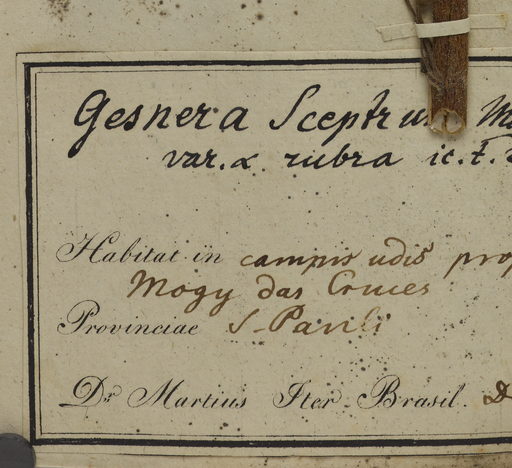 Gesnera Sceptrum
var. α rubra ic. t.
Habitat in campis udis
Mogy das Cruces
Provinciae S. Pauli
Dr. Martius Iter Brasil.